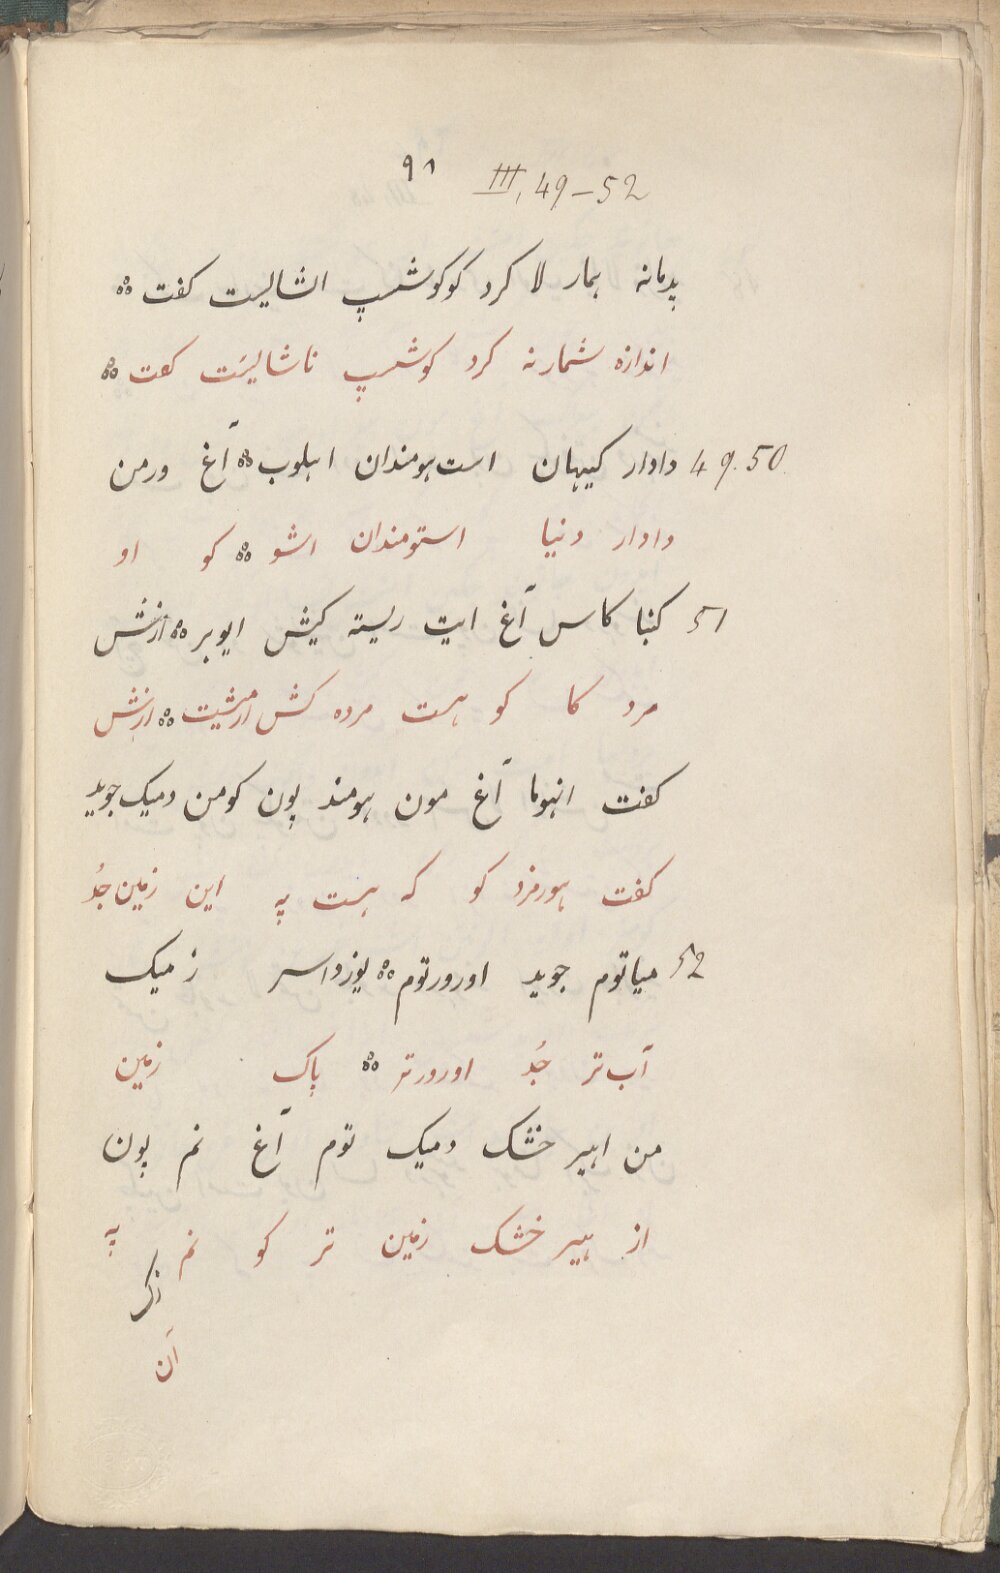 ۹۱ III, 49-52
پدمانه بمار لا کرد کوکوشسپ اشالیت کفت
اندازه شمار نه کرد کوشسپ ناشالیَت کفت
49.50 دادار کیهان است‌هومندان اهلوب آغ ورمن
دادار دنیا استومندان اشو کو او
51 کنبا کاس آغ ایت ریسته کیش ایوبر ازش
مرد کا کو هست مرده کش ازش
کفت انهوما آغ مون هومند پون کومن دمیک جوید
کفت هورمزد کو که هست په این زمین جُد
52 میاتوم جوید اورورتوم یوزداسر زمیک
آب‌تر جُد اورورتر پاک زمین
من اهیر خشک دمیک توم آغ نم پون
از هیر خشک زمین تر کو نم په
زک
آن